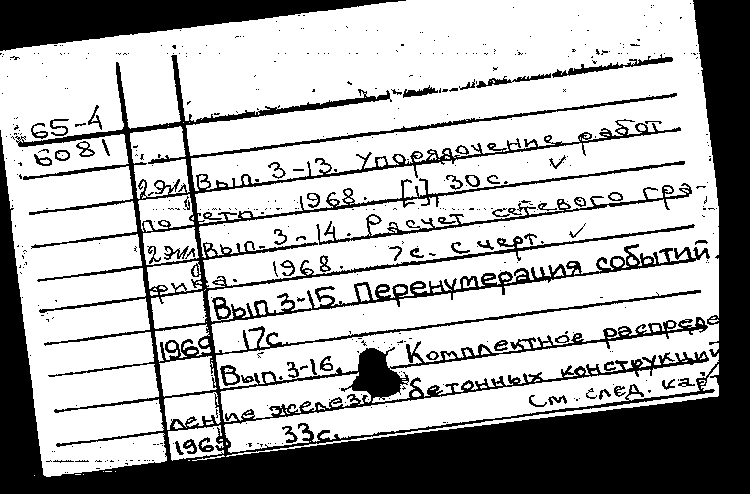 65-4
6081
2эк Вып. 3-13. Упорядочение работ
по сети. 1968. [1], 30с. ✓
2эк Вып. 3-14. Расчет сетевого гра-
фика. 1968. 7с. с черт. ✓
Вып. 3-15. Перенумерация событий.
1969. 17с.
Вып. 3-16. Комплектное распреде
ление железо бетонных конструкций
1969 33с. См. след. кар